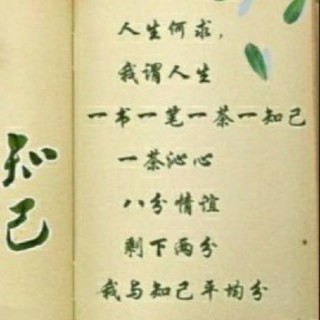 知己
人生何求，
我谓人生
一书一笔一茶一知己
一茶沁心
八分情谊
剩下两分
我与知己平均分